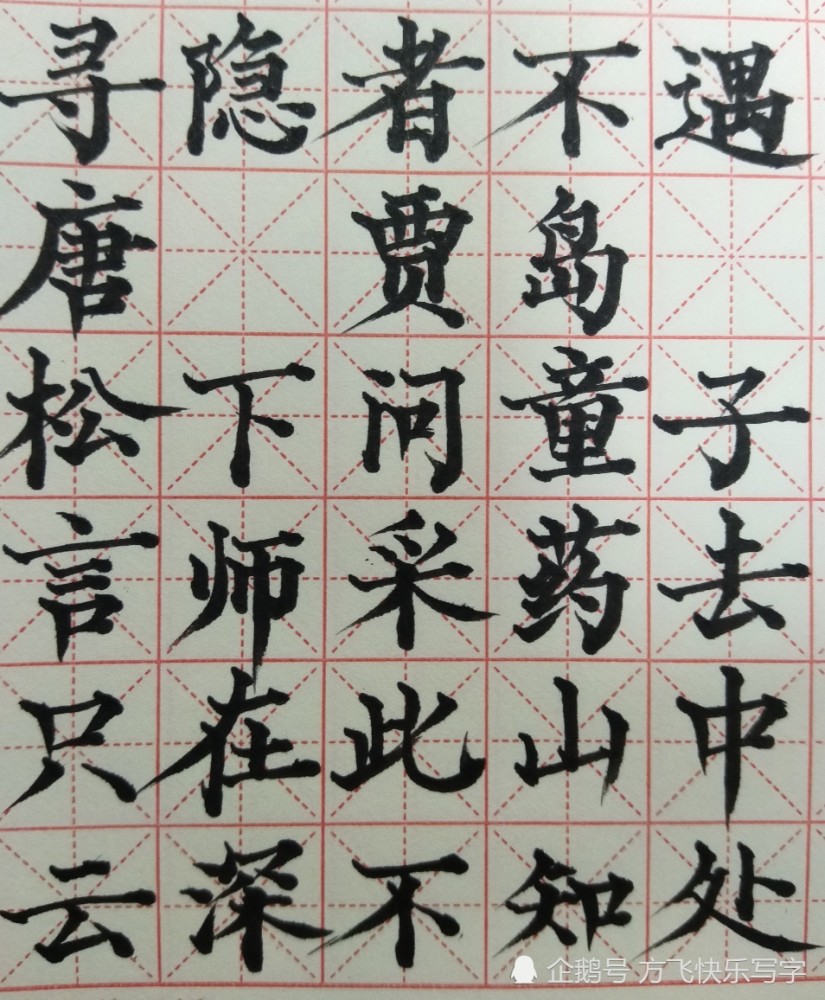 寻隐者不遇
唐 贾岛
松下问童子
言师采药去
只在此山中
云深不知处
企鹅号 方飞快乐写字